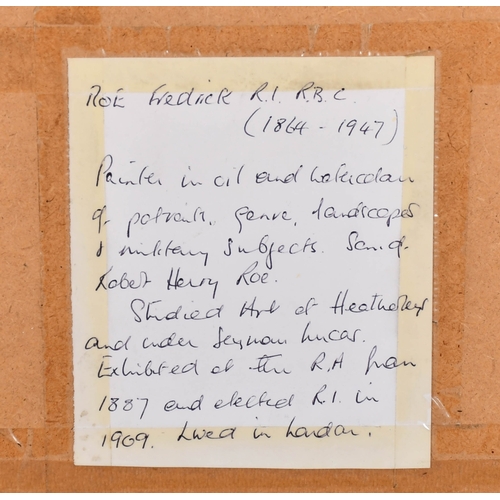 ROE Fredrick R.I. R.B.C.
(1864 - 1947)
Painter in oil and watercolour
of potraits, genre, landscapes
& military subjects. Son of
Robert Henry Roe.
Studied Art at Heatherleys
and under Seymour Lucas.
Exhibited at the R.A from
1887 and elected R.I. in
1909. Lived in London.